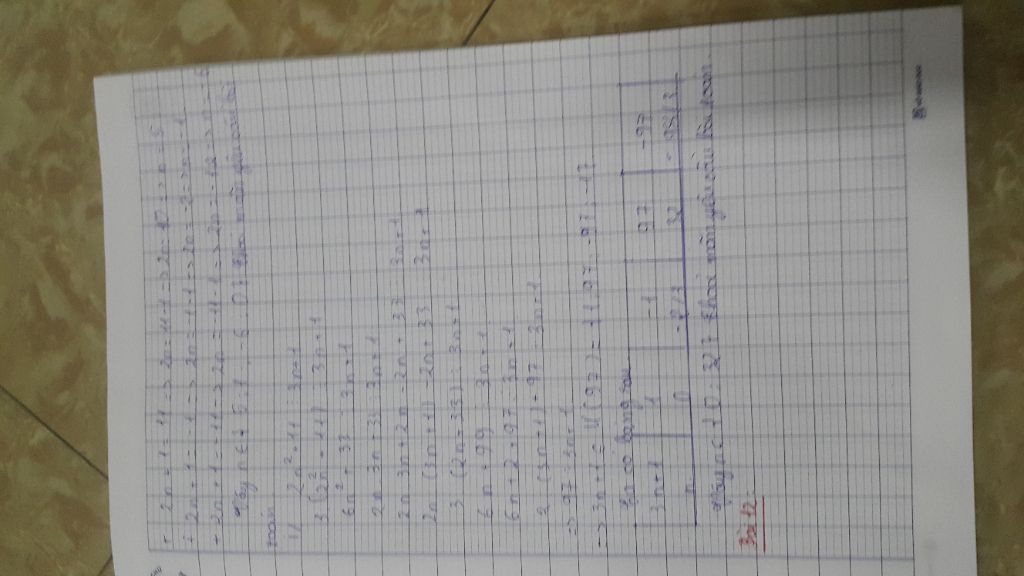 + 2n + 1 = 11 => 2n = 11 - 1 => 2n = 10 => n = 5
+ 2n + 1 = -1 => 2n = -1 - 1 => 2n = -2 => n = -1
+ 2n + 1 = -11 => 2n = -11 - 1 => 2n = -12 => n = -6
Vậy n ∈ { 5 ; -1 ; -6 ; 0 } thì thỏa mãn yêu cầu bài
toán
i/ 2n² + 11 ⋮ 3n + 1
3 (2n² + 11) ⋮ 3n + 1
6n² + 33 ⋮ 3n + 1
2n . 3n + 33 ⋮ 3n + 1
2n . 3n + 2n - 2n + 33 ⋮ 3n + 1
2n (3n + 1) - 2n + 33 ⋮ 3n + 1
3 (2n - 33) ⋮ 3n + 1
6n - 99 ⋮ 3n + 1
6n + 2 + 97 ⋮ 3n + 1
2 (3n + 1) + 97 ⋮ 3n + 1
=> 97 ⋮ 3n + 1
=> 3n + 1 ∈ Ư(97) = { 1 ; 97 ; -97 ; -1 }
Ta có bảng sau
3n + 1 1 -1 97 -97
n 0 -2/3 32 -98/3
Vậy n ∈ { 0 ; 32 } thỏa mãn yêu cầu bài toán.
Bài 12: